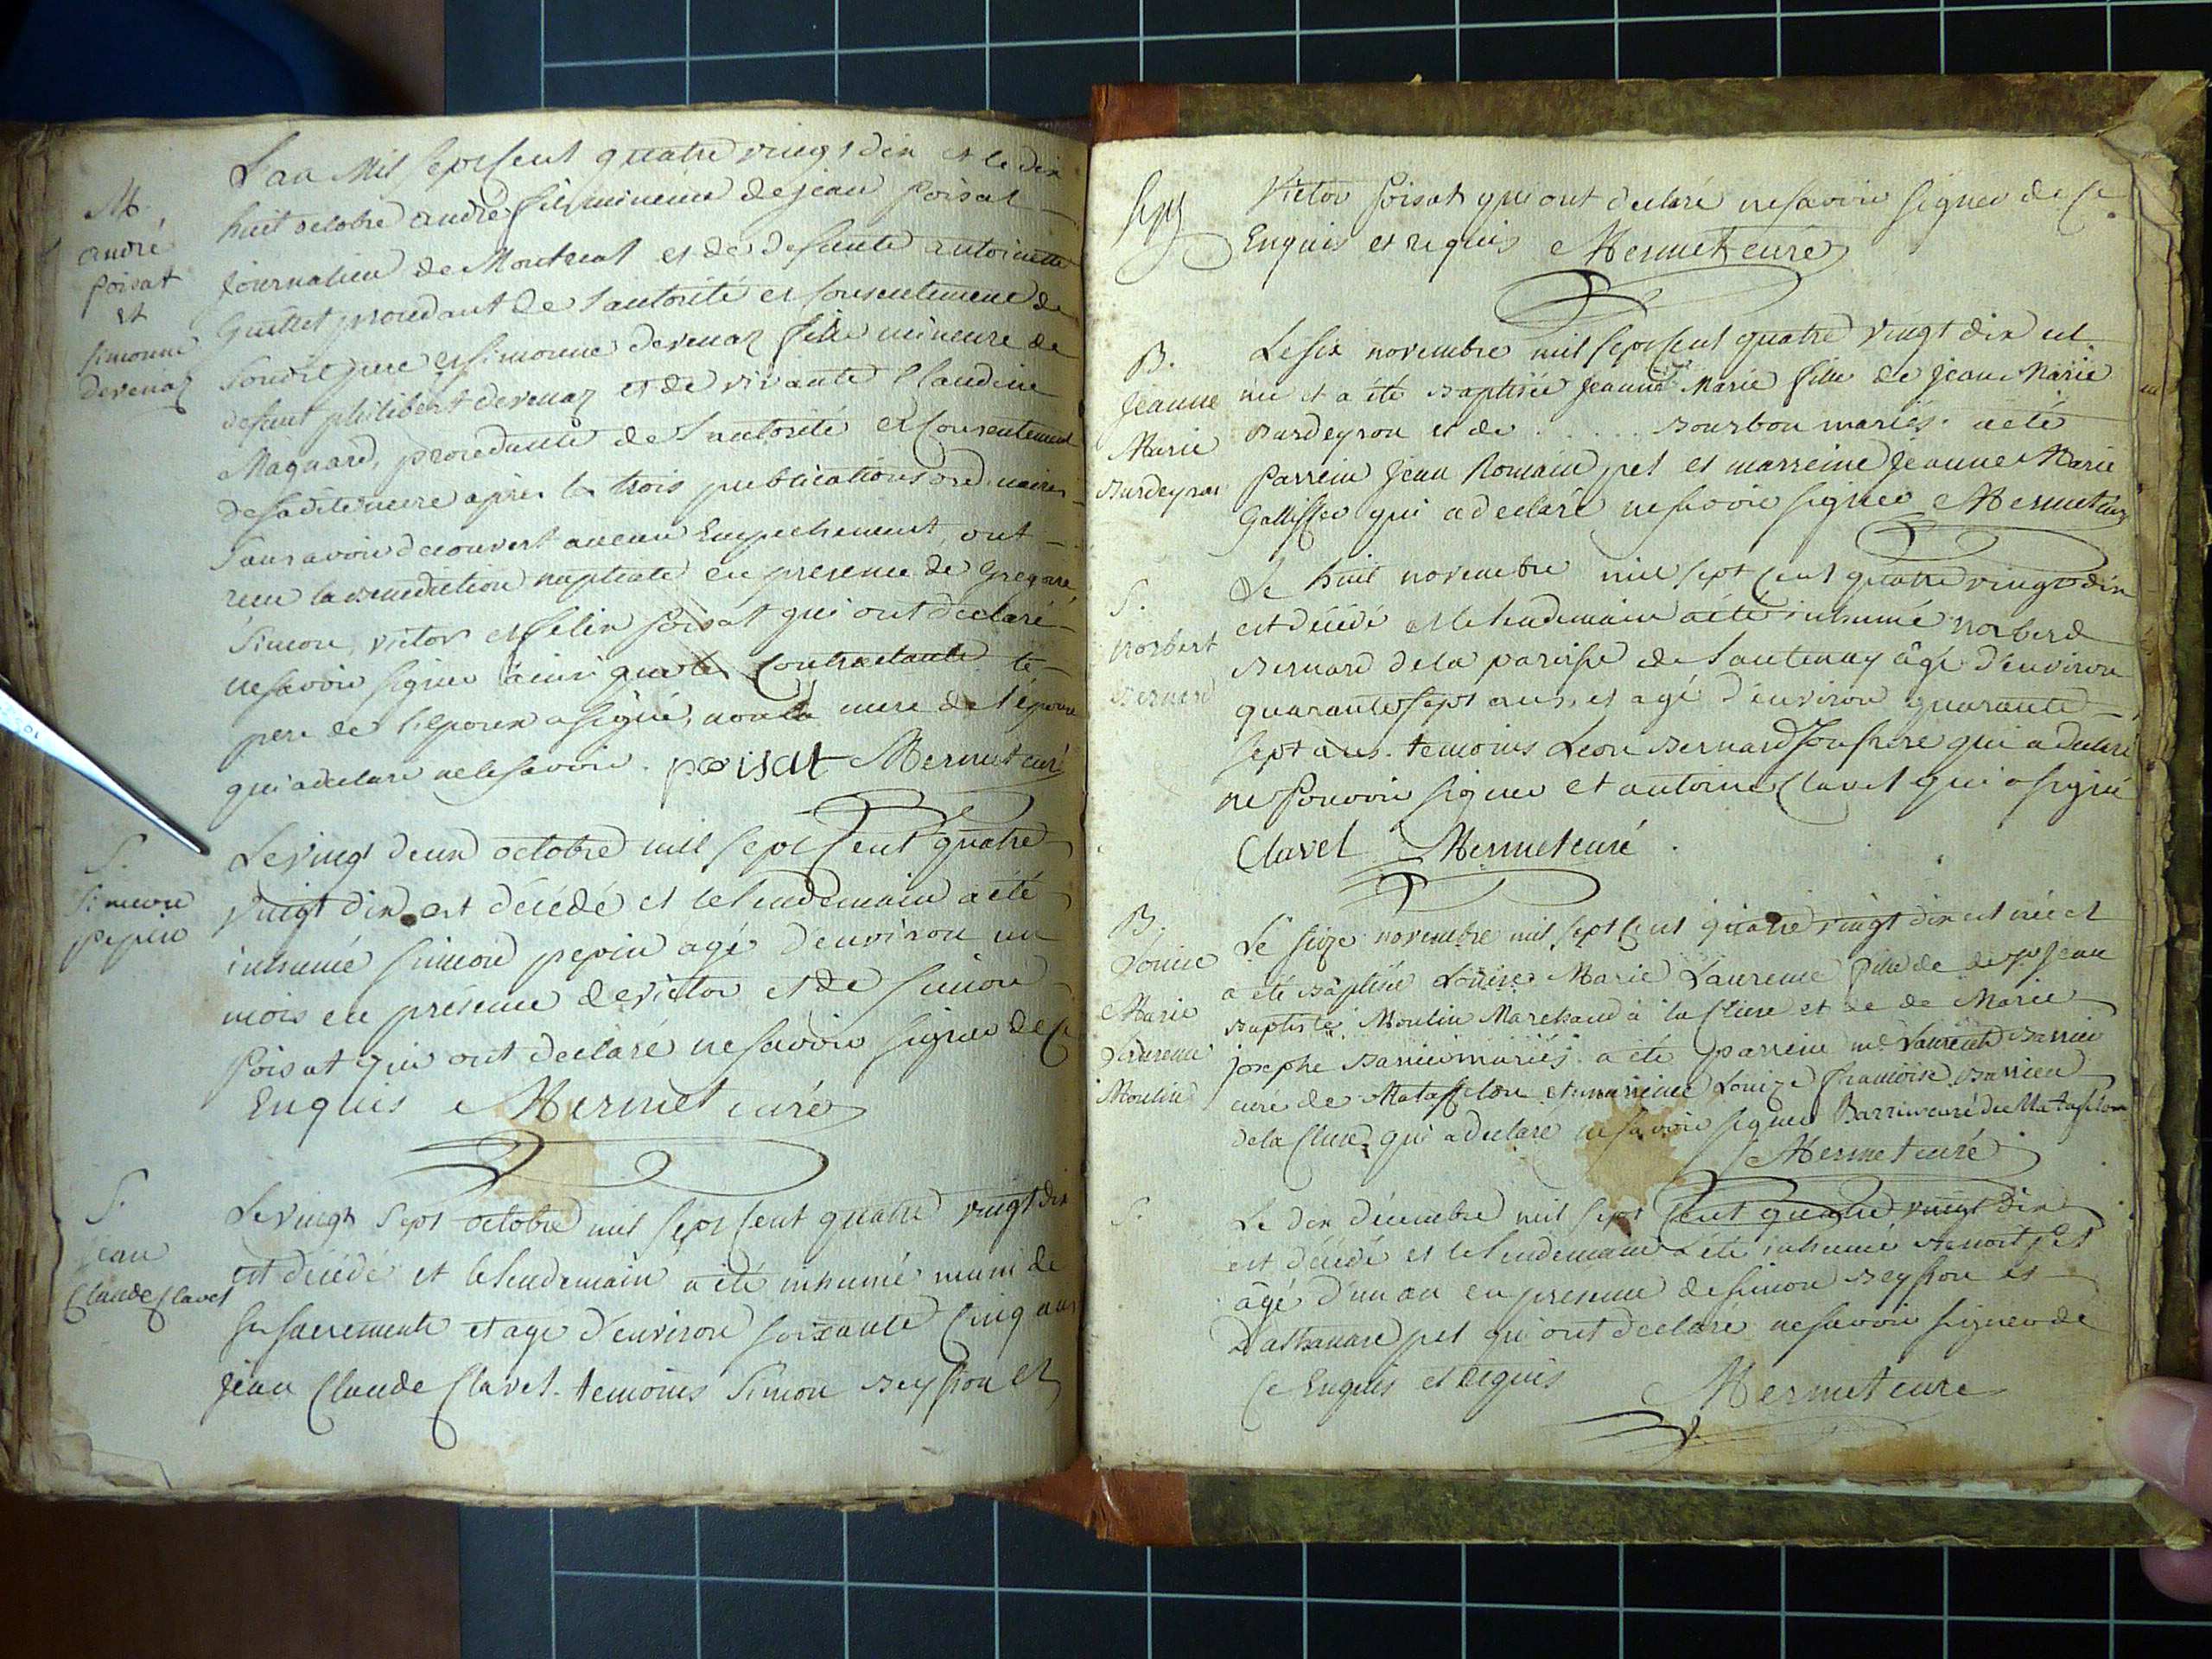 M.
andré
poisat
et
simonne
devenaz
L'an mil sept cent quatre vingt dix et le dix
huit octobre andré fils mineur de jean poisat
journalier de Montreal et de defunte antoinette
procedant de l'autorité et consentement de
sondit pere et simonne devenaz fille mineure de
defunt philibert devenaz et de vivante Claudine
Magnard, procedante de l'autorité et consentement
de sadite mere apres les trois publications ordinaires
sans avoir decouvert aucun Empechement, ont
recu la benediction nuptiale en presence de Gregoire,
simon, victor et felix poisat qui ont déclaré
ne savoir signer ainsi que les contractants le
pere de l'epoux a signé, non la mere de l'épouse
qui a declaré ne le savoir. poisat Mermet curé
S.
simeon
pepin
Le vingt deux octobre mil sept cent quatre
vingt dix est décédé et le lendemain a été
inhumé simeon pepin agé d'environ un
mois en présence de victor et de simon
poisat qui ont declaré ne savoir signer de ce
Enquis Mermet curé
S.
jean
Claude Clavel
Le vingt sept octobre mil sept cent quatre vingt dix
est décédé et le lendemain a été inhumé muni de
ses sacrements et agé d'environ soixante cinq ans
jean Claude Clavel. temoins simon Beysson et
victor poisat qui ont declaré ne savoir signer de ce
Enquis et requis Mermet curé
B.
jeanne
Marie
Burdeyron
Le six novembre mil sept cent quatre vingt dix est
née et a été Baptisée jeanne Marie fille de jean Marie
Burdeyron et de . . . . . Bourbon mariés. a été
Parrein jean Romain pel et marreine jeanne Marie
qui a declaré ne savoir signer Mermet curé
S.
Norbert
Bernard
Le huit novembre mil sept cent quatre vingt dix
est décédé et le lendemain a été inhumé Norberd
Bernard de la paroisse de Lantenay âgé d'environ
quarante sept ans, et agé d'environ quarante
sept ans. temoins Leon Bernard son frere qui a declaré
ne Pouvoir signer et antoine Clavel qui a signé
Clavel Mermet curé
B.
Louise
Marie
Laurence
Moulin
Le seize novembre mil sept cent quatre vingt dix est née et
a été Baptisée Louise Marie Laurence fille de de sr jean
Baptiste Moulin Marchand à la Cluse et de de Marie
josephe Barrieu mariés. a été parrein mre Laurent Barrieu
curé de Matafelon et marreine Louize francoise Barrieu
de la Cluse, qui a declaré ne savoir signer Barrieu curé de Matafelon
Mermet curé
S.
Le dix décembre mil sept cent quatre vingt dix
est décédé et le lendemain a été inhumé Benoit pel
âgé d'un an en presence de simon Beysson et
D'athanase pel qui ont declaré ne savoir signer de
ce Enquis et requis Mermet curé